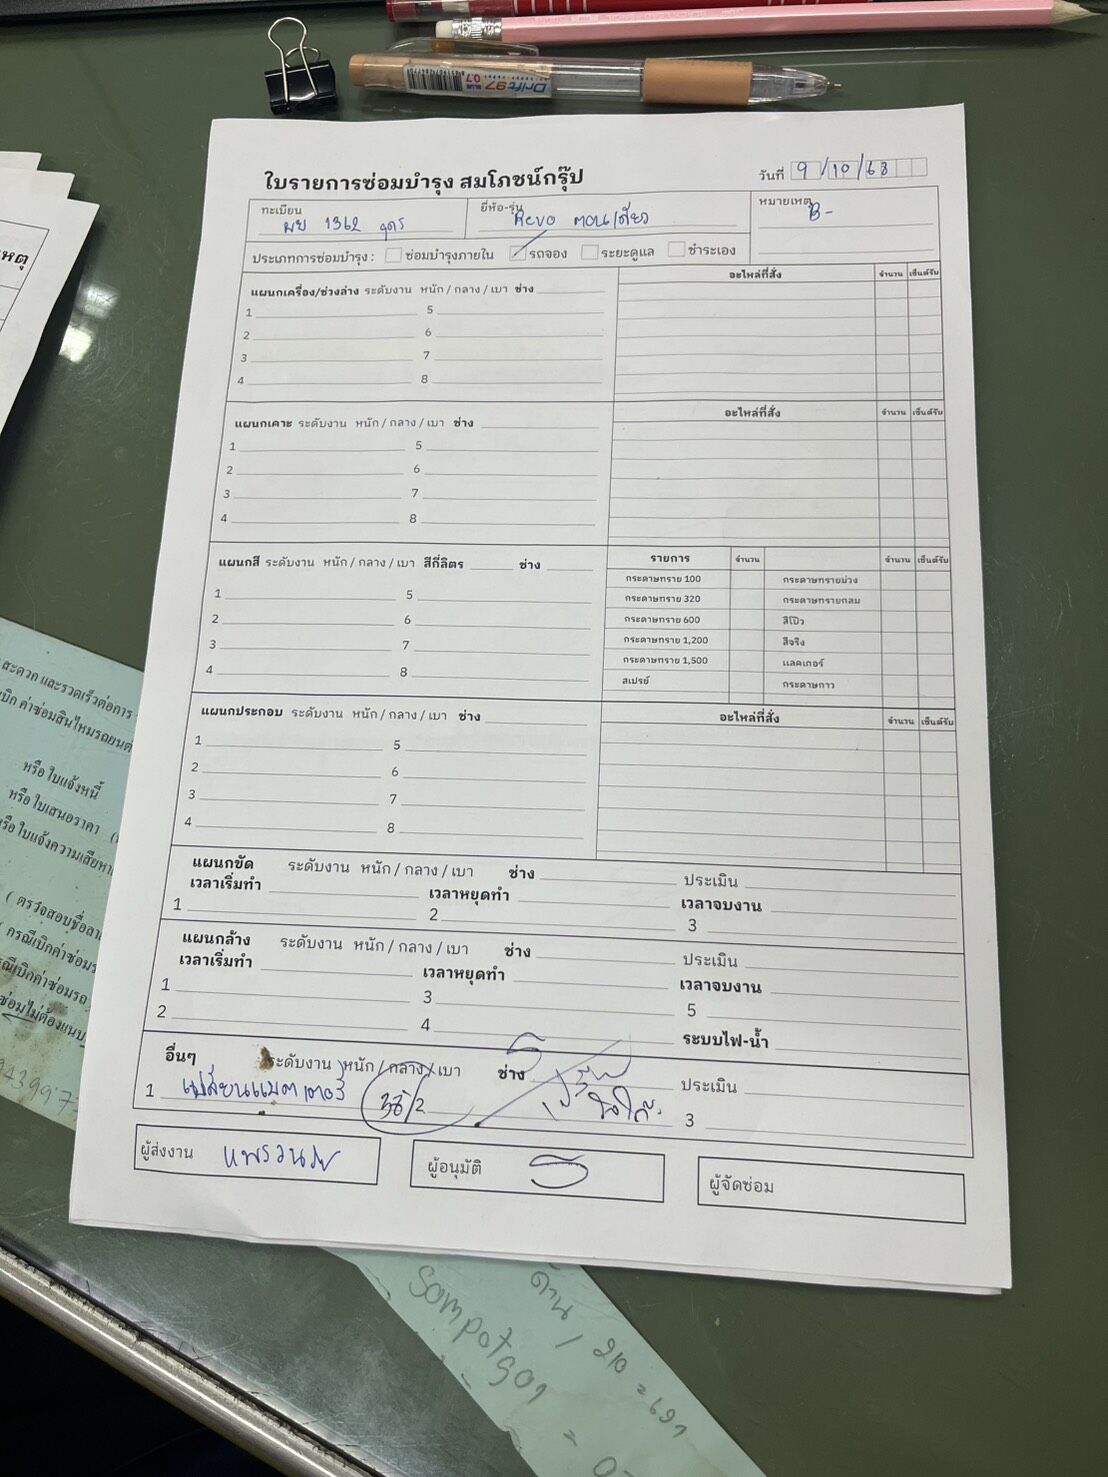 Drift 97
BLUE 0.7
ใบรายการซ่อมบำรุง สมโภชน์กรุ๊ป
วันที่ 9/10/68
ทะเบียน
ผย 1362 อุดร
ยี่ห้อ-รุ่น
Revo ตอนเดียว
หมายเหตุ
B-
ประเภทการซ่อมบำรุง : ซ่อมบำรุงภายใน รถจอง ระยะดูแล ชำระเอง
แผนกเครื่อง/ช่วงล่าง ระดับงาน หนัก / กลาง / เบา ช่าง
อะไหล่ที่สั่ง จำนวน เซ็นต์รับ
1 5
2 6
3 7
4 8
แผนกเคาะ ระดับงาน หนัก / กลาง / เบา ช่าง
อะไหล่ที่สั่ง จำนวน เซ็นต์รับ
1 5
2 6
3 7
4 8
แผนกสี ระดับงาน หนัก / กลาง / เบา สีกี่ลิตร ช่าง
รายการ จำนวน จำนวน เซ็นต์รับ
1 5
2 6
3 7
4 8
กระดาษทราย 100 กระดาษทรายม่วง
กระดาษทราย 320 กระดาษทรายกลม
กระดาษทราย 600 สีโป๊ว
กระดาษทราย 1,200 สีจริง
กระดาษทราย 1,500 แลคเกอร์
สเปรย์ กระดาษกาว
แผนกประกอบ ระดับงาน หนัก / กลาง / เบา ช่าง
อะไหล่ที่สั่ง จำนวน เซ็นต์รับ
1 5
2 6
3 7
4 8
แผนกขัด ระดับงาน หนัก / กลาง / เบา ช่าง ประเมิน
เวลาเริ่มทำ เวลาหยุดทำ เวลาจบงาน
1 2 3
แผนกล้าง ระดับงาน หนัก / กลาง / เบา ช่าง ประเมิน
เวลาเริ่มทำ เวลาหยุดทำ เวลาจบงาน
1 3 5
2 4 ระบบไฟ-น้ำ
อื่นๆ ระดับงาน หนัก / กลาง / เบา ช่าง ประเมิน
1 เปลี่ยนแบตเตอรี่ 2 3
ผู้ส่งงาน แพรวนภา
ผู้อนุมัติ
ผู้จัดซ่อม
สะดวก และรวดเร็วต่อการ
เบิก ค่าซ่อมสินไหมรถยนต์
หรือ ใบแจ้งหนี้
หรือ ใบเสนอราคา
หรือ ใบแจ้งความเสียหาย
( ตรวจสอบชื่อ
กรณีเบิกค่าซ่อม
ณีเบิกค่าซ่อมรถ
ซ่อมไม่ต้องแนบ
หตุ
Sompotgon